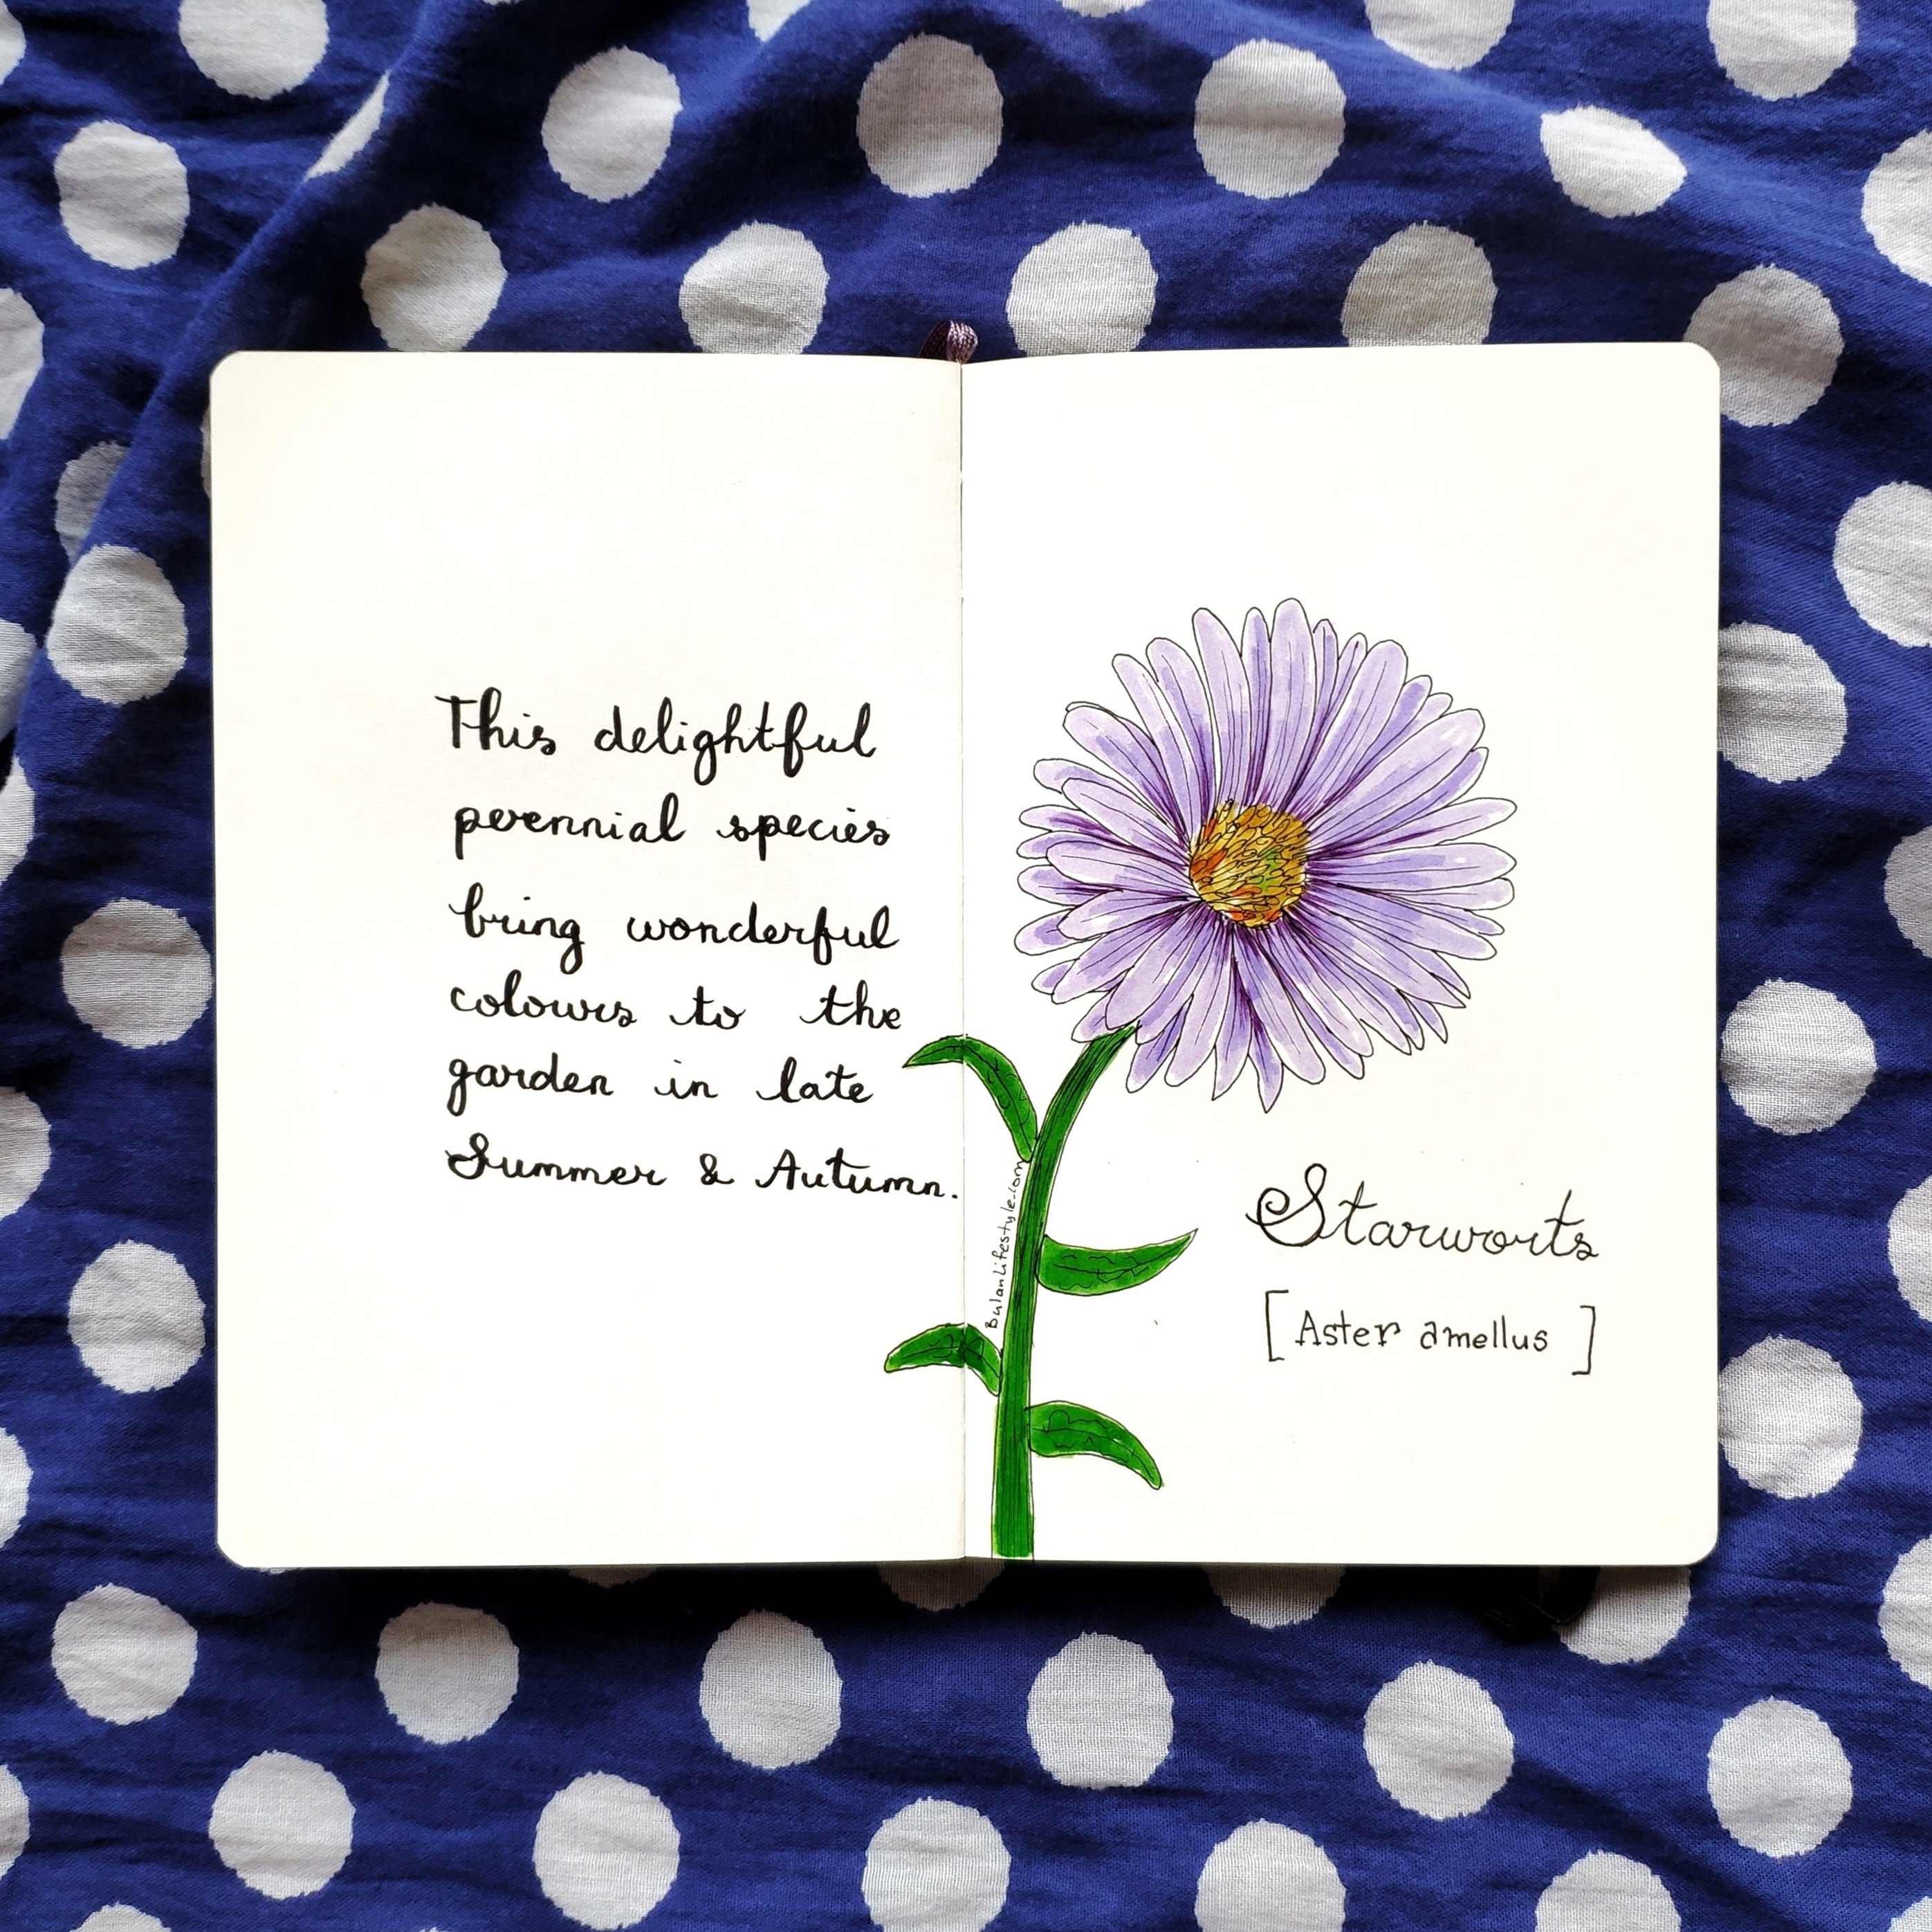 This delightful
perennial species
bring wonderful
colours to the
garden in late
Summer & Autumn.
BulanLifestyle.com
Starworts
[Aster amellus]